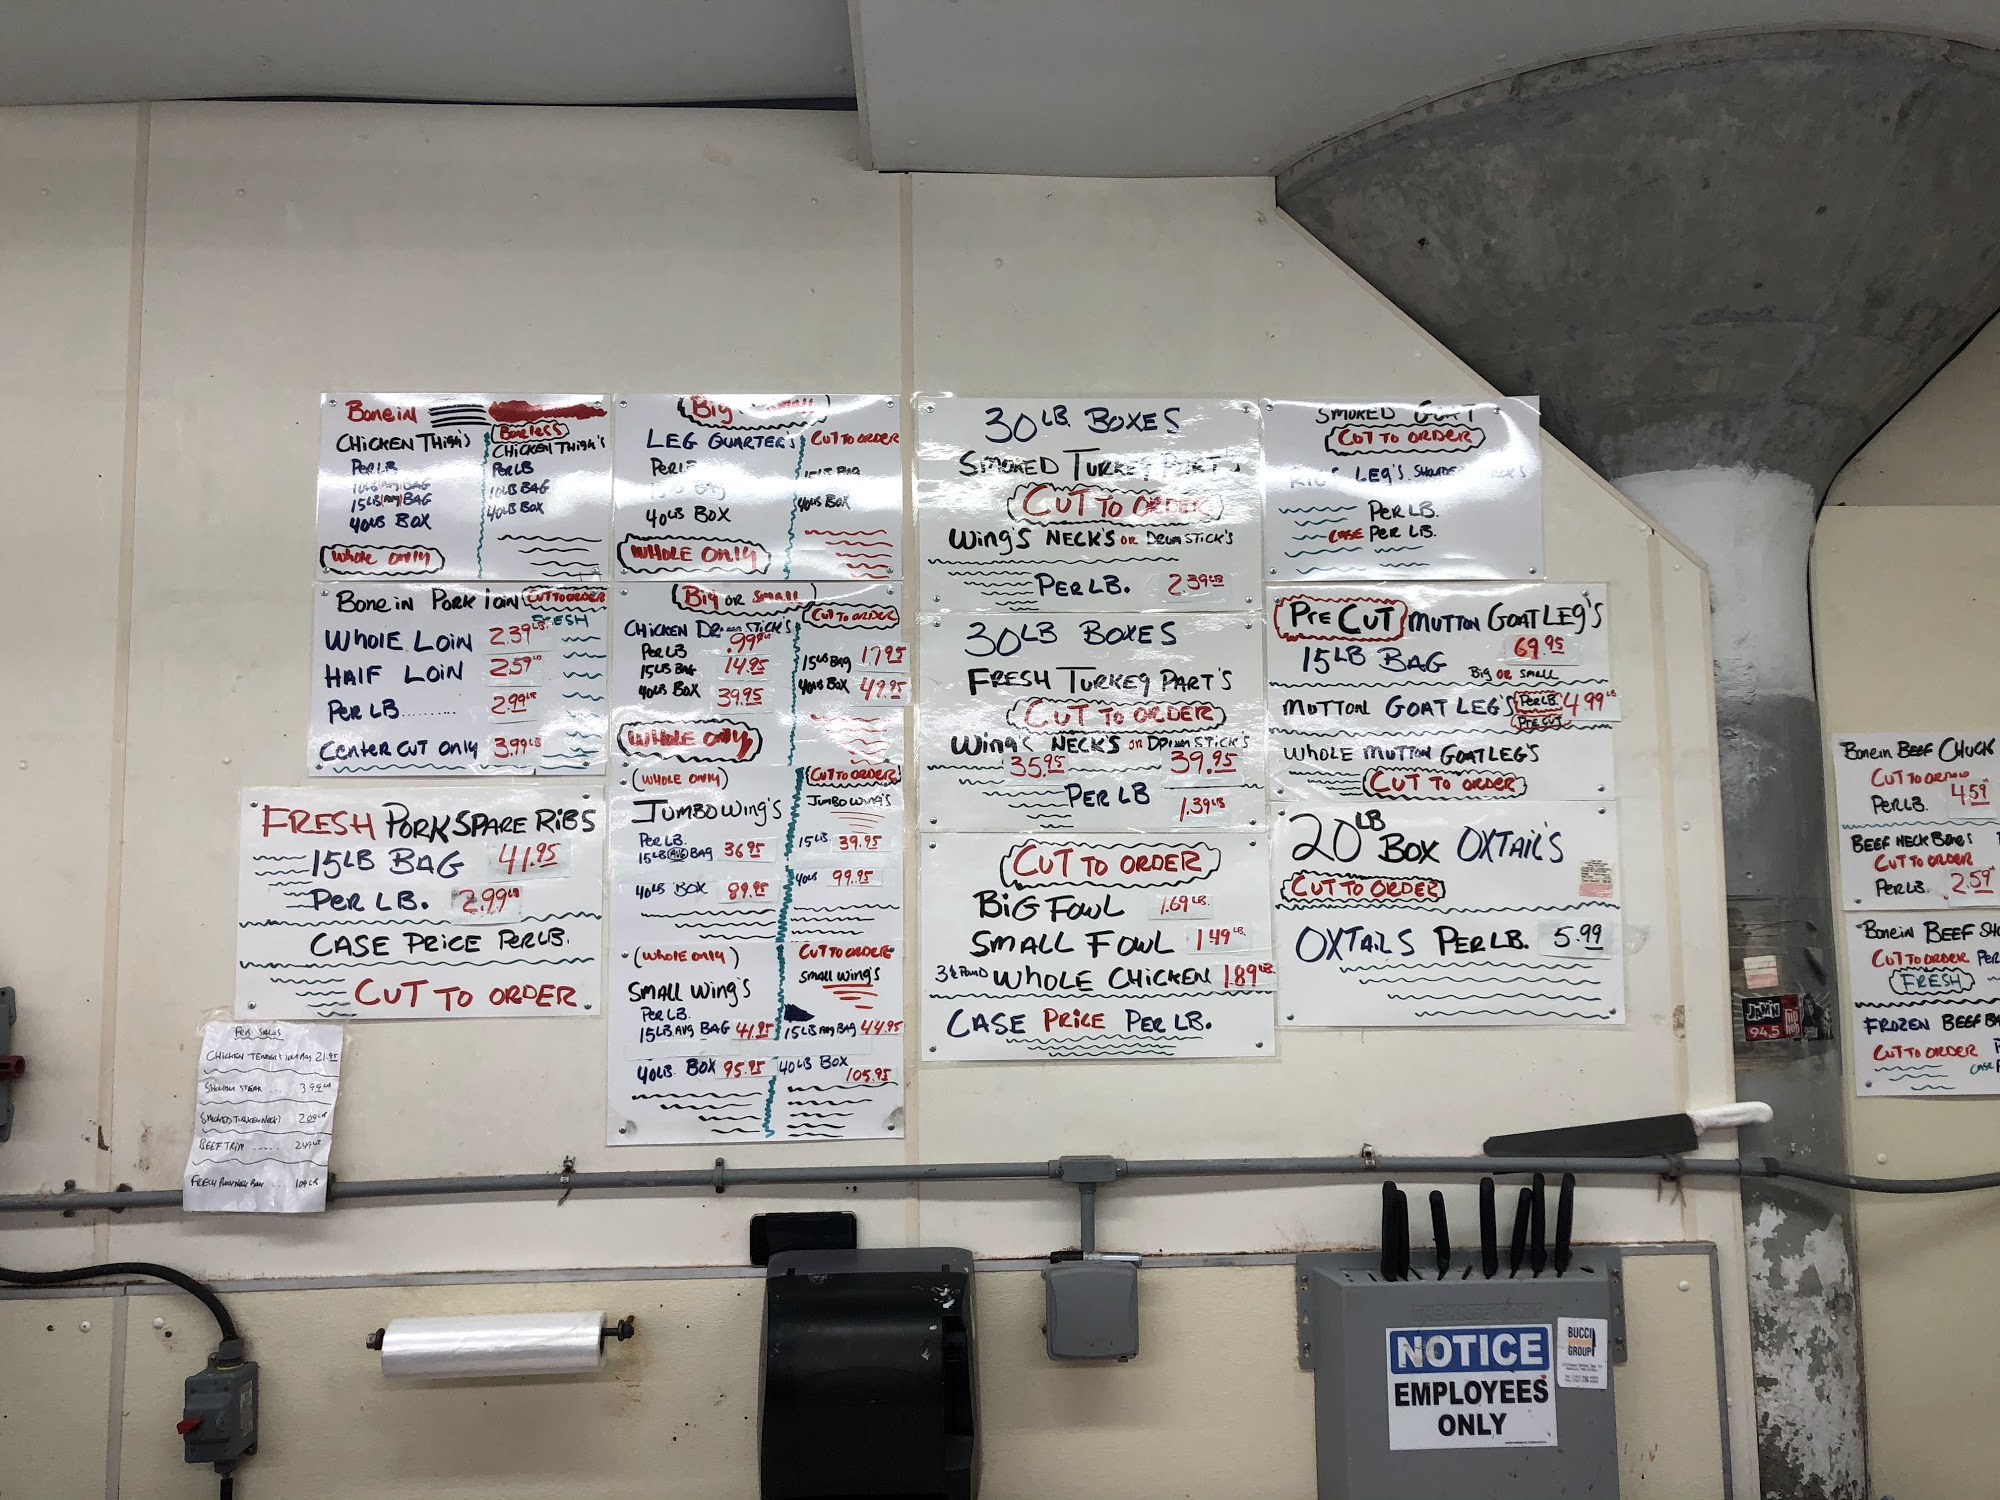 Bonein
Boneless
CHICKEN THIGH'S
CHICKEN THIGH'S
PER LB
PER LB
10LB BAG
15LB BAG
40LB BOX
40LB BOX
WHOLE ONLY
BIG SMALL
LEG QUARTER'S CUT TO ORDER
PER LB
15LB BAG
BAG
40LB BOX
40LB BOX
WHOLE ONLY
30 LB. BOXES
SMOKED TURKEY PART'S
CUT TO ORDER
WING'S NECK'S OR DRUMSTICK'S
PER LB. 2.39 LB
SMOKED GOAT
CUT TO ORDER
LEG'S. SHOULDER
PER LB.
CASE PER LB.
BONEIN PORK LOIN CUT TO ORDER
FRESH
WHOLE LOIN 2.39 LB
HALF LOIN 2.59 LB
PER LB.......... 2.99 LB
CENTER CUT ONLY 3.99 LB
BIG OR SMALL
CUT TO ORDER
CHICKEN DRUMSTICK'S
PER LB .99 LB
15LB BAG 14.95
15LB BAG 17.95
40LB BOX 39.95
40LB BOX 49.95
WHOLE ONLY
30 LB BOXES
FRESH TURKEY PART'S
CUT TO ORDER
WING'S NECK'S OR DRUMSTICK'S
35.95 39.95
PER LB 1.39 LB
PRE CUT MUTTON GOAT LEG'S
15 LB BAG 69.95
BIG OR SMALL
MUTTON GOAT LEG'S PER LB. 4.99 LB
PRE CUT
WHOLE MUTTON GOAT LEG'S
CUT TO ORDER
FRESH PORK SPARE RIBS
15 LB BAG 41.95
PER LB. 2.99 LB
CASE PRICE PER LB.
CUT TO ORDER
(WHOLE ONLY)
CUT TO ORDER
JUMBO WING'S
JUMBO WING'S
PER LB.
15LB AVG BAG 36.95
15LB. 39.95
40LB BOX 89.95
40LB 99.95
(WHOLE ONLY)
CUT TO ORDER
SMALL WING'S
SMALL WING'S
PER LB.
15LB AVG BAG 41.95
15LB AVG BAG 44.95
40LB. BOX 95.95
40LB BOX
105.95
CUT TO ORDER
BIG FOWL 1.69 LB.
SMALL FOWL 1.49 LB.
3½ POUND WHOLE CHICKEN 1.89 LB
CASE PRICE PER LB.
20 LB BOX OXTAIL'S
CUT TO ORDER
OXTAILS PER LB. 5.99
CHICKEN TENDERS 21.95
3.99 LB
SMOKED TURKEY NECK
BEEF TRIM ..... 2.49 LB
BONEIN BEEF CHUCK
CUT TO ORDER
PER LB. 4.59
BEEF NECK BONES
CUT TO ORDER
PER LB. 2.59
BONEIN BEEF
CUT TO ORDER PER
FRESH
FROZEN BEEF
CUT TO ORDER
CASE
JAM'N
94.5
NOTICE
EMPLOYEES
ONLY
BUCCI
GROUP